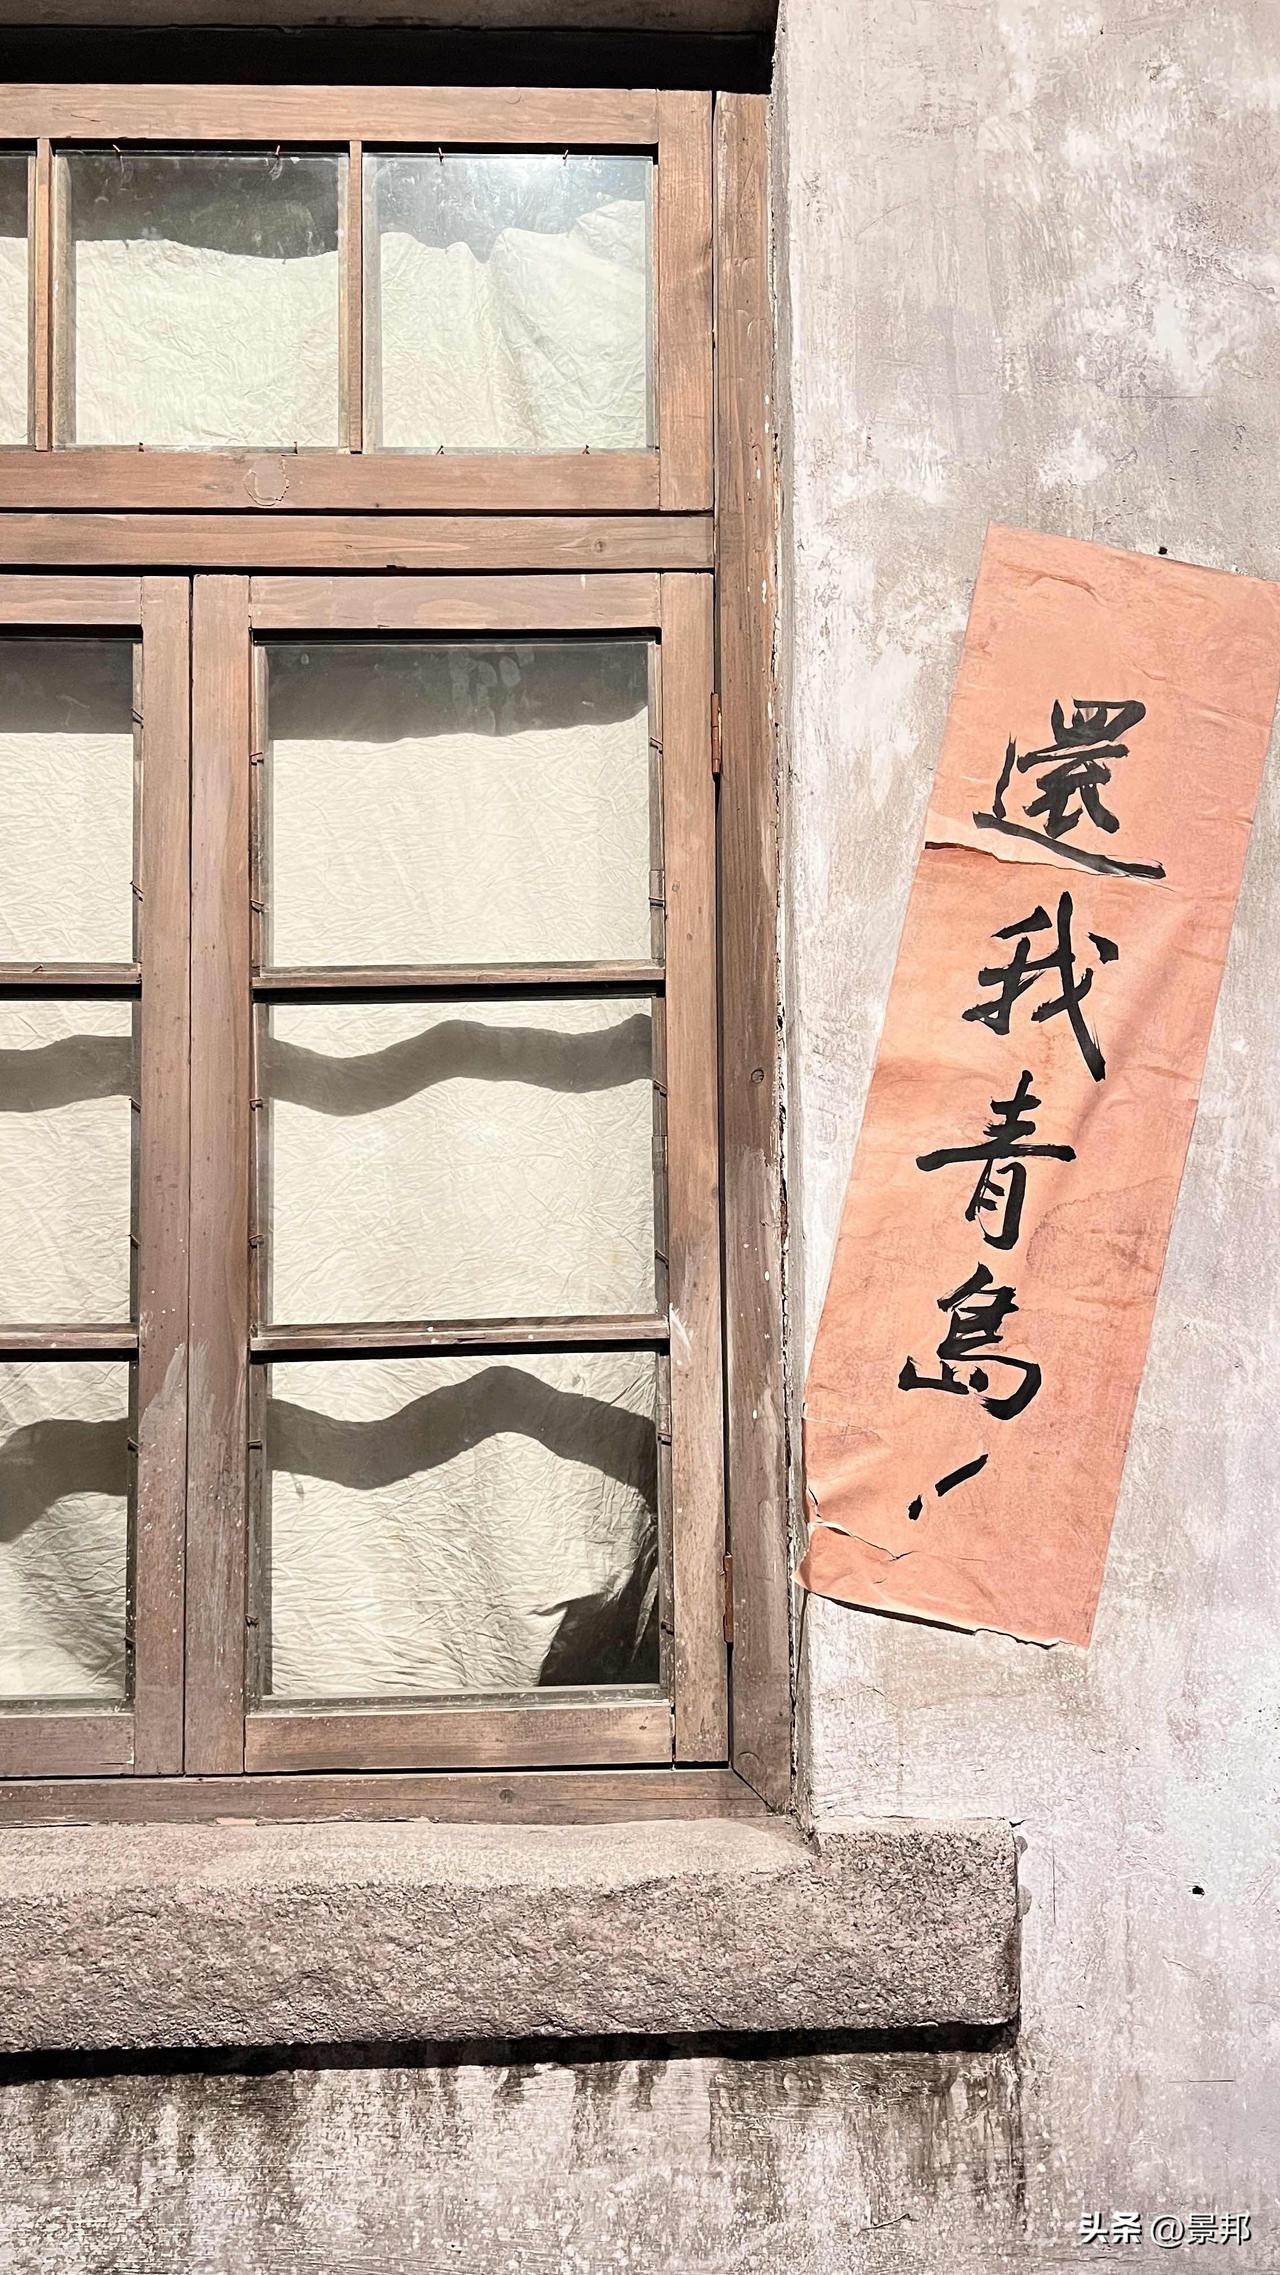 還我青島！
头条 @景邦